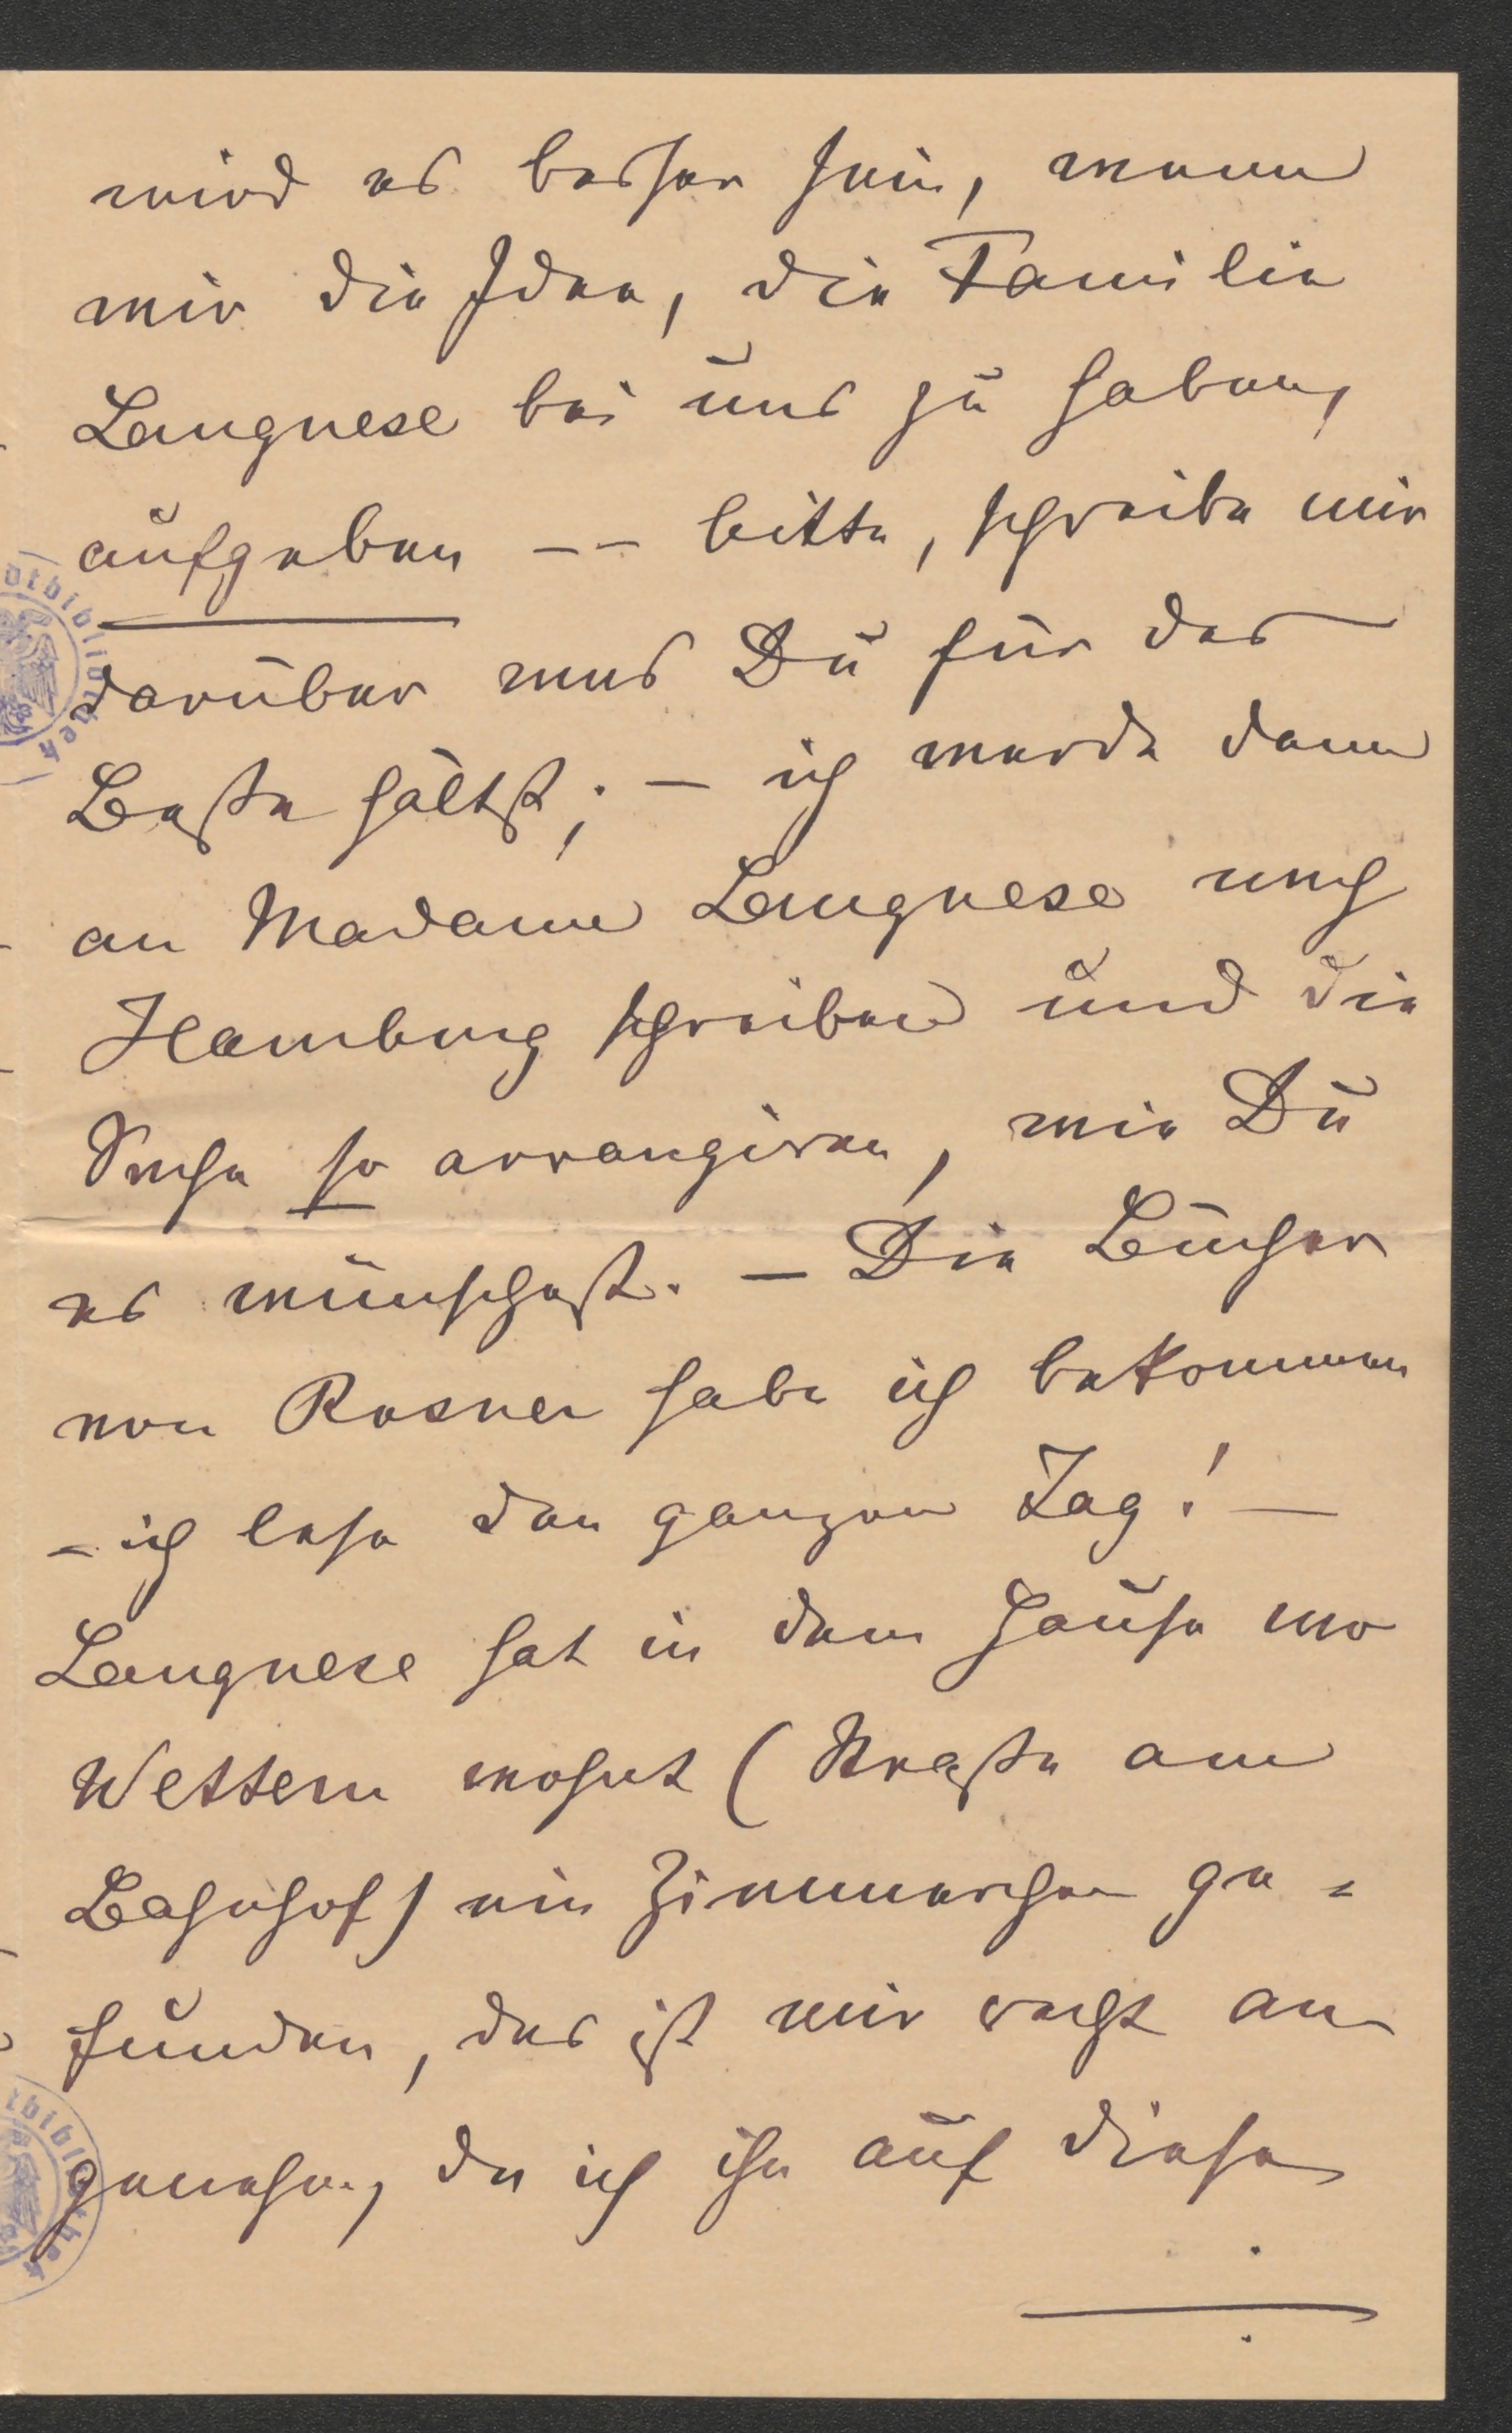 wird es besser sein, wenn
wir die Idee, die Familie
Langnese bei uns zu haben,
aufgeben -- bitte, schreibe mir
darüber was Du für das
Beste hältst; – ich werde dann
an Madame Langnese nach
Hamburg schreiben und die
Sache so arrangiren, wie Du
es wünschest. – Die Bücher
von Rosner habe ich bekommen
– ich lese den ganzen Tag! –
Langnese hat in dem Hause wo
Wettern wohnt (Straße am
Bahnhof) ein Zimmerchen ge=
funden, das ist mir recht an
genehm, da ich ihn auf diese